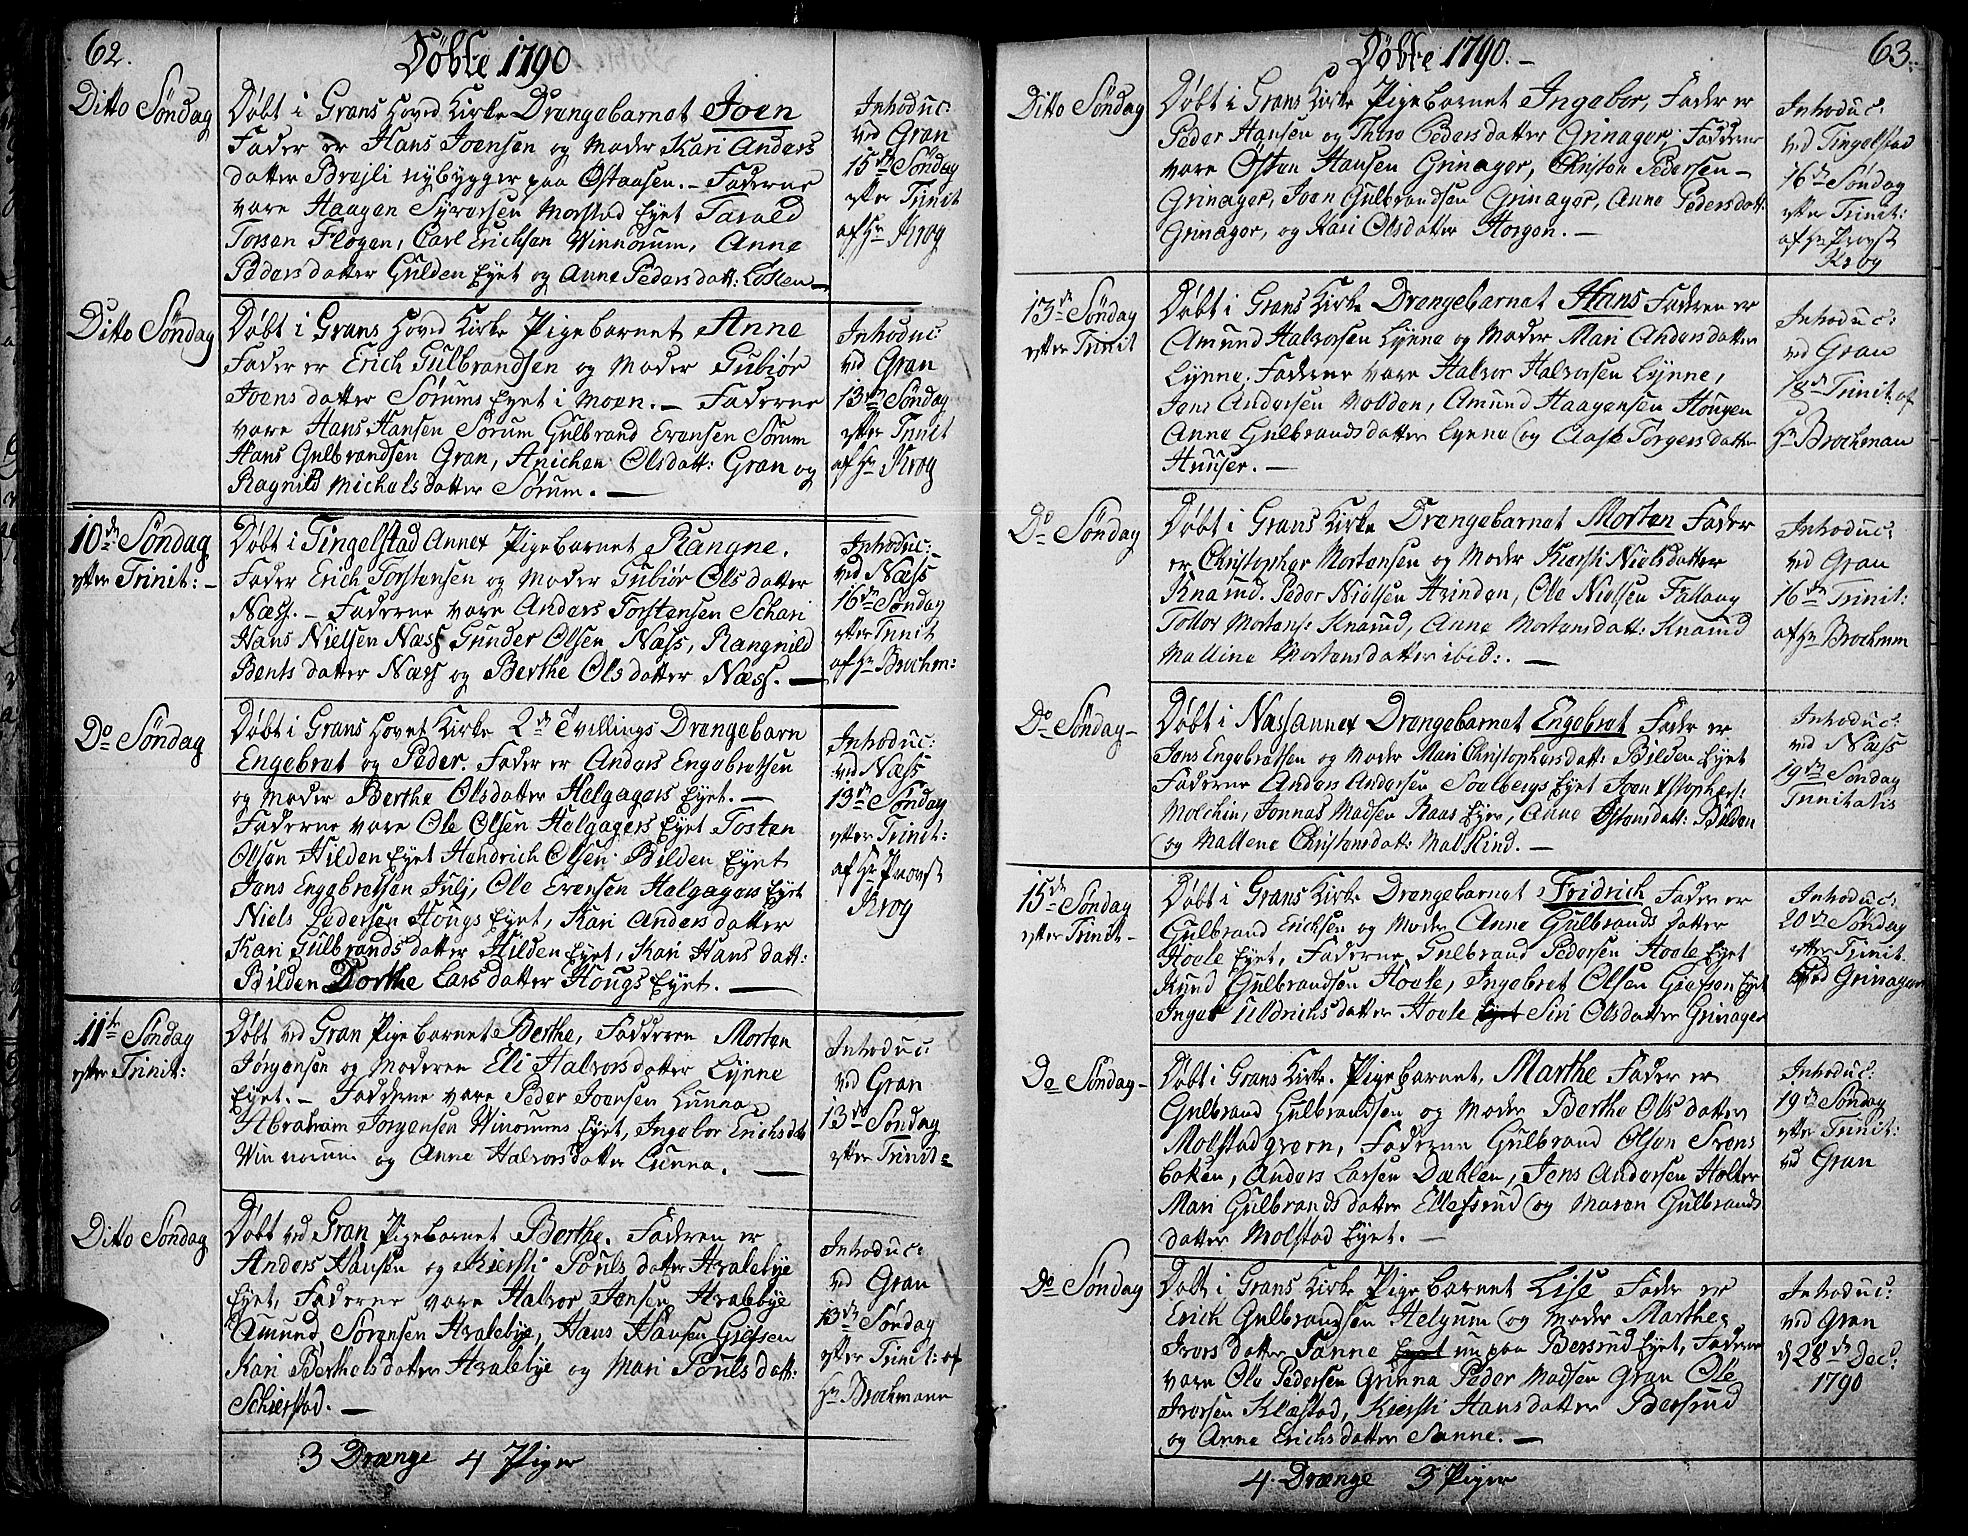 62.
Døbte 1790
Ditto Søndag
Døbt i Grans Hoved Kirke Drengebarnet Joen
Fader er Hans Joensen og Moder Kari Anders
datter Brejli nybygger paa Østaasen. - Fadderne
vare Haagen Syversen Morstad Eyet Tarald
Torsen Flogen, Carl Erichsen Winnorum, Anne
Pedersdatter Gulden Eyet og Anne Pedersdatt: Løsten
Introduc:
ved Gran
15de Søndag
efter Trinit
af Hr Krog
Ditto Søndag
Døbt i Grans Hoved Kirke Pigebarnet Anne
Fader er Erich Gulbrandsen og Moder Gubiør
Joensdatter Sørums Eyet i Moen. - Fadderne
vare Hans Hansen Sørum Gulbrand Evensen Sørum
Hans Gulbrandsen Gran, Anichen Olsdatt: Gran og
Ragnild Michelsdatter Sørum. -
Introduc:
ved Gran
13de Søndag
efter Trinit
af Hr Krog
10de Søndag
efter Trinit: -
Døbt i Tingelstad Annex Pigebarnet Rangne.
Fader Erich Torstensen og Moder Gubiør Olsdatter
Næss. - Fadderne vare Anders Torstensen Schari
Hans Nielsen Næss Gunder Olsen Næss, Rangnild
Bentsdatter Næss og Berthe Olsdatter Næss. -
Introduc: -
ved Næss
16de Søndag
efter Trinit
af Hr Brochm:
Do Søndag
Døbt i Grans Hovet Kirke 2de Tvillings Drengebørn
Engebret og Peder. Fader er Anders Engebretsen
og Moder Berthe Olsdatter Helgagers Eyet. -
Fadderne vare Ole Olsen Helgagers Eyet Tosten
Olsen Hilden Eyet Hendrich Olsen Bilden Eyet
Jens Engebretsen Julj, Ole Evensen Helgagers Eyet
Niels Pedersen Hougs Eyet, Kari Andersdatter
Kari Gulbrandsdatter Hilden Eyet, Kari Hansdatt:
Bilden Dorthe Larsdatter Hougs Eyet. -
Introduc:
ved Næss
13de Søndag
efter Trinit:
af Hr Provst
Krog
11te Søndag
efter Trinit:
Døbt ved Gran Pigebarnet Berthe, Fadderen Morten
Jørgensen og Moderen Eli Halvorsdatter Lynne
Eyet. - Fadderne vare Peder Joensen Lunna
Abraham Jørgensen Winorums Eyet, Ingebor Erichsdat
Winnorum og Anne Halvorsdatter Lunna. -
Introduc:
ved Gran
13de Søndag
efter Trinit=
Ditto Søndag
Døbt ved Gran Pigebarnet Berthe. Faderen er
Anders Hansen og Kiersti Poulsdatter Hvalebye
Eyet, Fadderne vare Halvor Jensen Hvalebye
Amund Sørensen Hvalebye, Hans Hansen Giefsen
Kari Berthelsdatter Hvalebye og Mari Poulsdatt:
Schierstad. -
Introduc:
ved Gran
13de Søndag
efter Trinit: af
Hr Brochmann
3 Drænge 4 Piger
63.
Døbte 1790. -
Ditto Søndag
Døbt i Grans Kirke Pigebarnet Ingebor, Fader er
Peder Hansen og Thore Pedersdatter Grinager, Fadderne
vare Østen Hansen Grinager, Christen Pedersen -
Grinager, Joen Gulbrandsen Grinager, Anne Pedersdatt:
Grinager, og Kari Olsdatter Horgen. -
Introduc:
ved Tingelstad
16de Søndag
efter Trinit:
af Hr Provst
Krog
13de Søndag
efter Trinit
Døbt i Grans Kirke Drengebarnet Hans Fadren er
Amund Halvorsen Lynne og Moder Mari Andersdatter
Lynne. Fadderne vare Halvor Halvorsen Lynne,
Jens Andersen Molden, Amund Haagensen Hougen
Anne Gulbrandsdatter Lynne og Aase Torgersdatter
Huuser. -
Introduc:
ved Gran
18de Trinit. af
Hr Brochman
Do Søndag
Døbt i Grans Kirke Drengebarnet Morten Fader
er Christopher Mortensen og Moder Kiersti Nielsdatter
Knarud. Peder Nielsen Hvinden, Ole Nielsen Fallang
Tollov Mortens: Knarud, Anne Mortensdatt: Knarud
Mallene Mortensdatter ibid:. -
Introduc:
ved Gran
16de Trinit:
af Hr Brochmm
Do Søndag -
Døbt i Næss Annex Drengebarnet Engebret Fader er
Jens Engebretsen og Moder Mari Christophersdatt: Bilden Eyet
Fadderne Anders Andersen Soelbergs Eyet Joen Xstophers:
Molchin, Jonnas Madsen Raas Eyer, Anne Østensdatt: Bilden
og Mallene Christensdatt: Malkind. -
Introduc:
ved Næss
19de Søndag
Trinitatis
15de Søndag
efter Trinit -
Døbt i Grans Kirke Drengebarnet Fridrich Fader er
Gulbrand Erichsen og Moder Anne Gulbrandsdatter
Hoele Eyet, Fadderne Gulbrand Pedersen Hoele Eyet
Knud Gulbrandsen Hoele, Ingebret Olsen Eyet
Inger Uldrichsdatter Hoele Eyet Siri Olsdatter Grinager
Introduc:
20de Søndag
efter Trinit.
ved Grinager
Do Søndag -
Døbt i Grans Kirke. Pigebarnet, Marthe Fader er
Gulbrand Gulbrandsen og Moder Berthe Olsdatter
Molstadgræen, Fadderne Gulbrand Olsen Svens
bakken, Anders Larsen Dæhlen, Jens Andersen Holter
Mari Gulbrandsdatter Ellefsrud og Maren Gulbrands
datter Molstad Eyet. -
Introduc:
19de Søndag
efter Trinit:
ved Gran
Do Søndag
Døbt i Grans Kirke Pigebarnet Lise Fader er
Erich Gulbrandsen Helgum og Moder Marthe
Iversdatter Sanne Eyet nu paa Bersrud Eyet, Fadderne
vare Ole Pedersen Grinna Peder Madsen Gran Ole
Iversen Klæstad, Kiersti Hansdatter Bersrud
og Anne Erichsdatter Sanne. -
Introduc:
ved Gran
d 28de Dec:
1790
4 Drænge 3 Piger